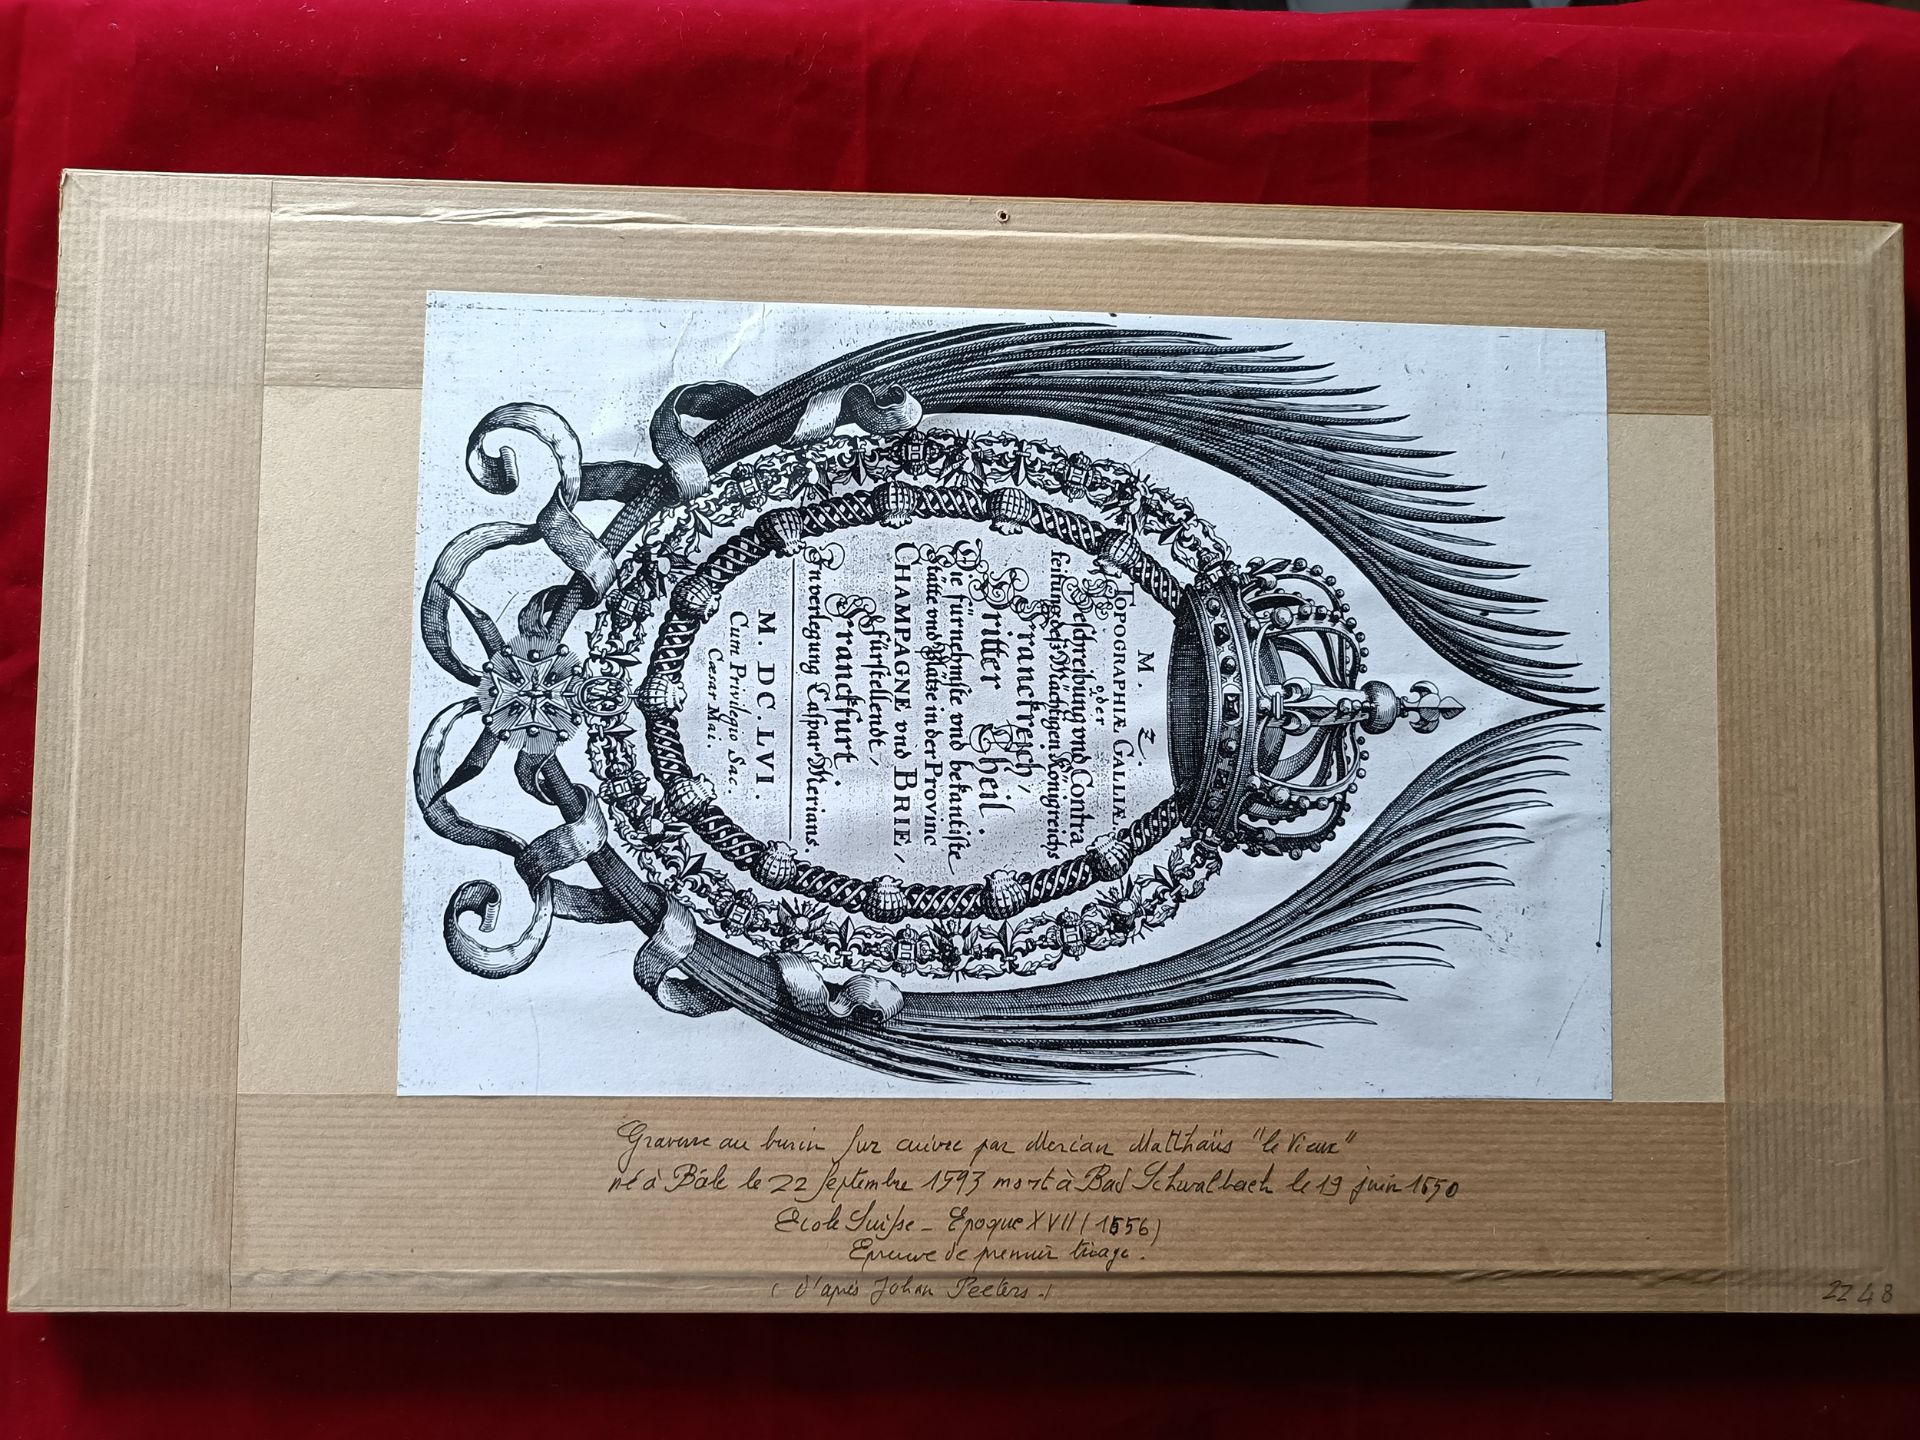 M. Z.
TOPOGRAPHIÆ GALLIÆ,
oder
Beschreibung vnd Contra
feitung deß Mächtigen Königreichs
Franckreich,
Dritter Theil.
Die fürnehmste vnd bekantiste
Stätte vnd Plätze in der Provinc
CHAMPAGNE vnd BRIE,
Fürstellendt,
Franckfurt
In verlegung Caspar Merians.
M. DC. LVI.
Cum Privilegio Sac.
Cæsar Mai.
Gravure au burin sur cuivre par Merian Matthaüs "le Vieux"
né à Bâle le 22 septembre 1593 mort à Bad Schwalbach le 19 juin 1650
Ecole Suisse - Epoque XVII (1656)
Epreuve de premier tirage.
(d'après Johan Peeters.)
2248